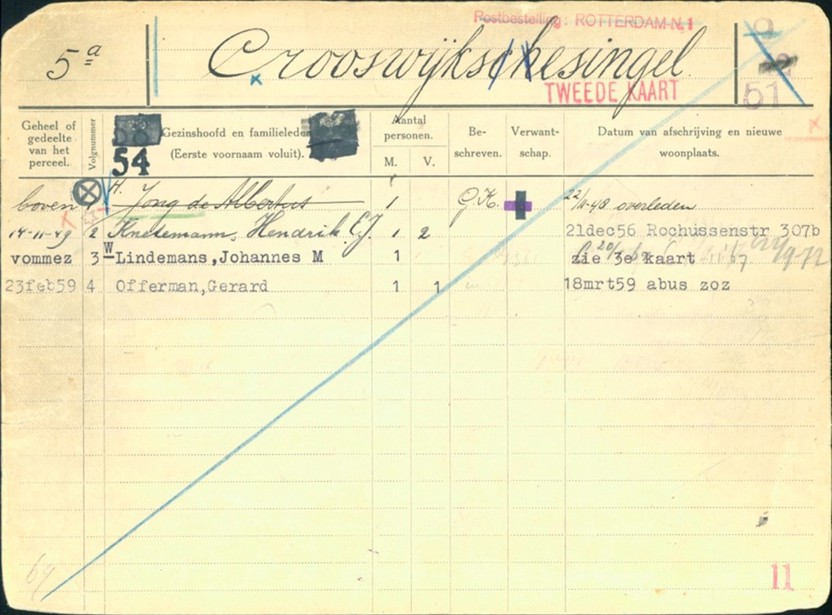 Postbestelling: ROTTERDAM-N.1
5a Crooswijkschesingel 51
TWEEDE KAART
Geheel of gedeelte van het perceel. Volgnummer 54 Gezinshoofd en familieleden (Eerste voornaam voluit). Aantal personen. M. V. Be-schreven. Verwant-schap. Datum van afschrijving en nieuwe woonplaats.
boven 1 H. Jong de Albertus 1 G.K. 22/11-48 overleden
14-11-49 2 Knetemann, Hendrik E.J. 1 2 21dec56 Rochussenstr 307b
vommez 3 W Lindemans,Johannes M 1 zie 3e kaart
23feb59 4 Offerman,Gerard 1 1 18mrt59 abus zoz
11